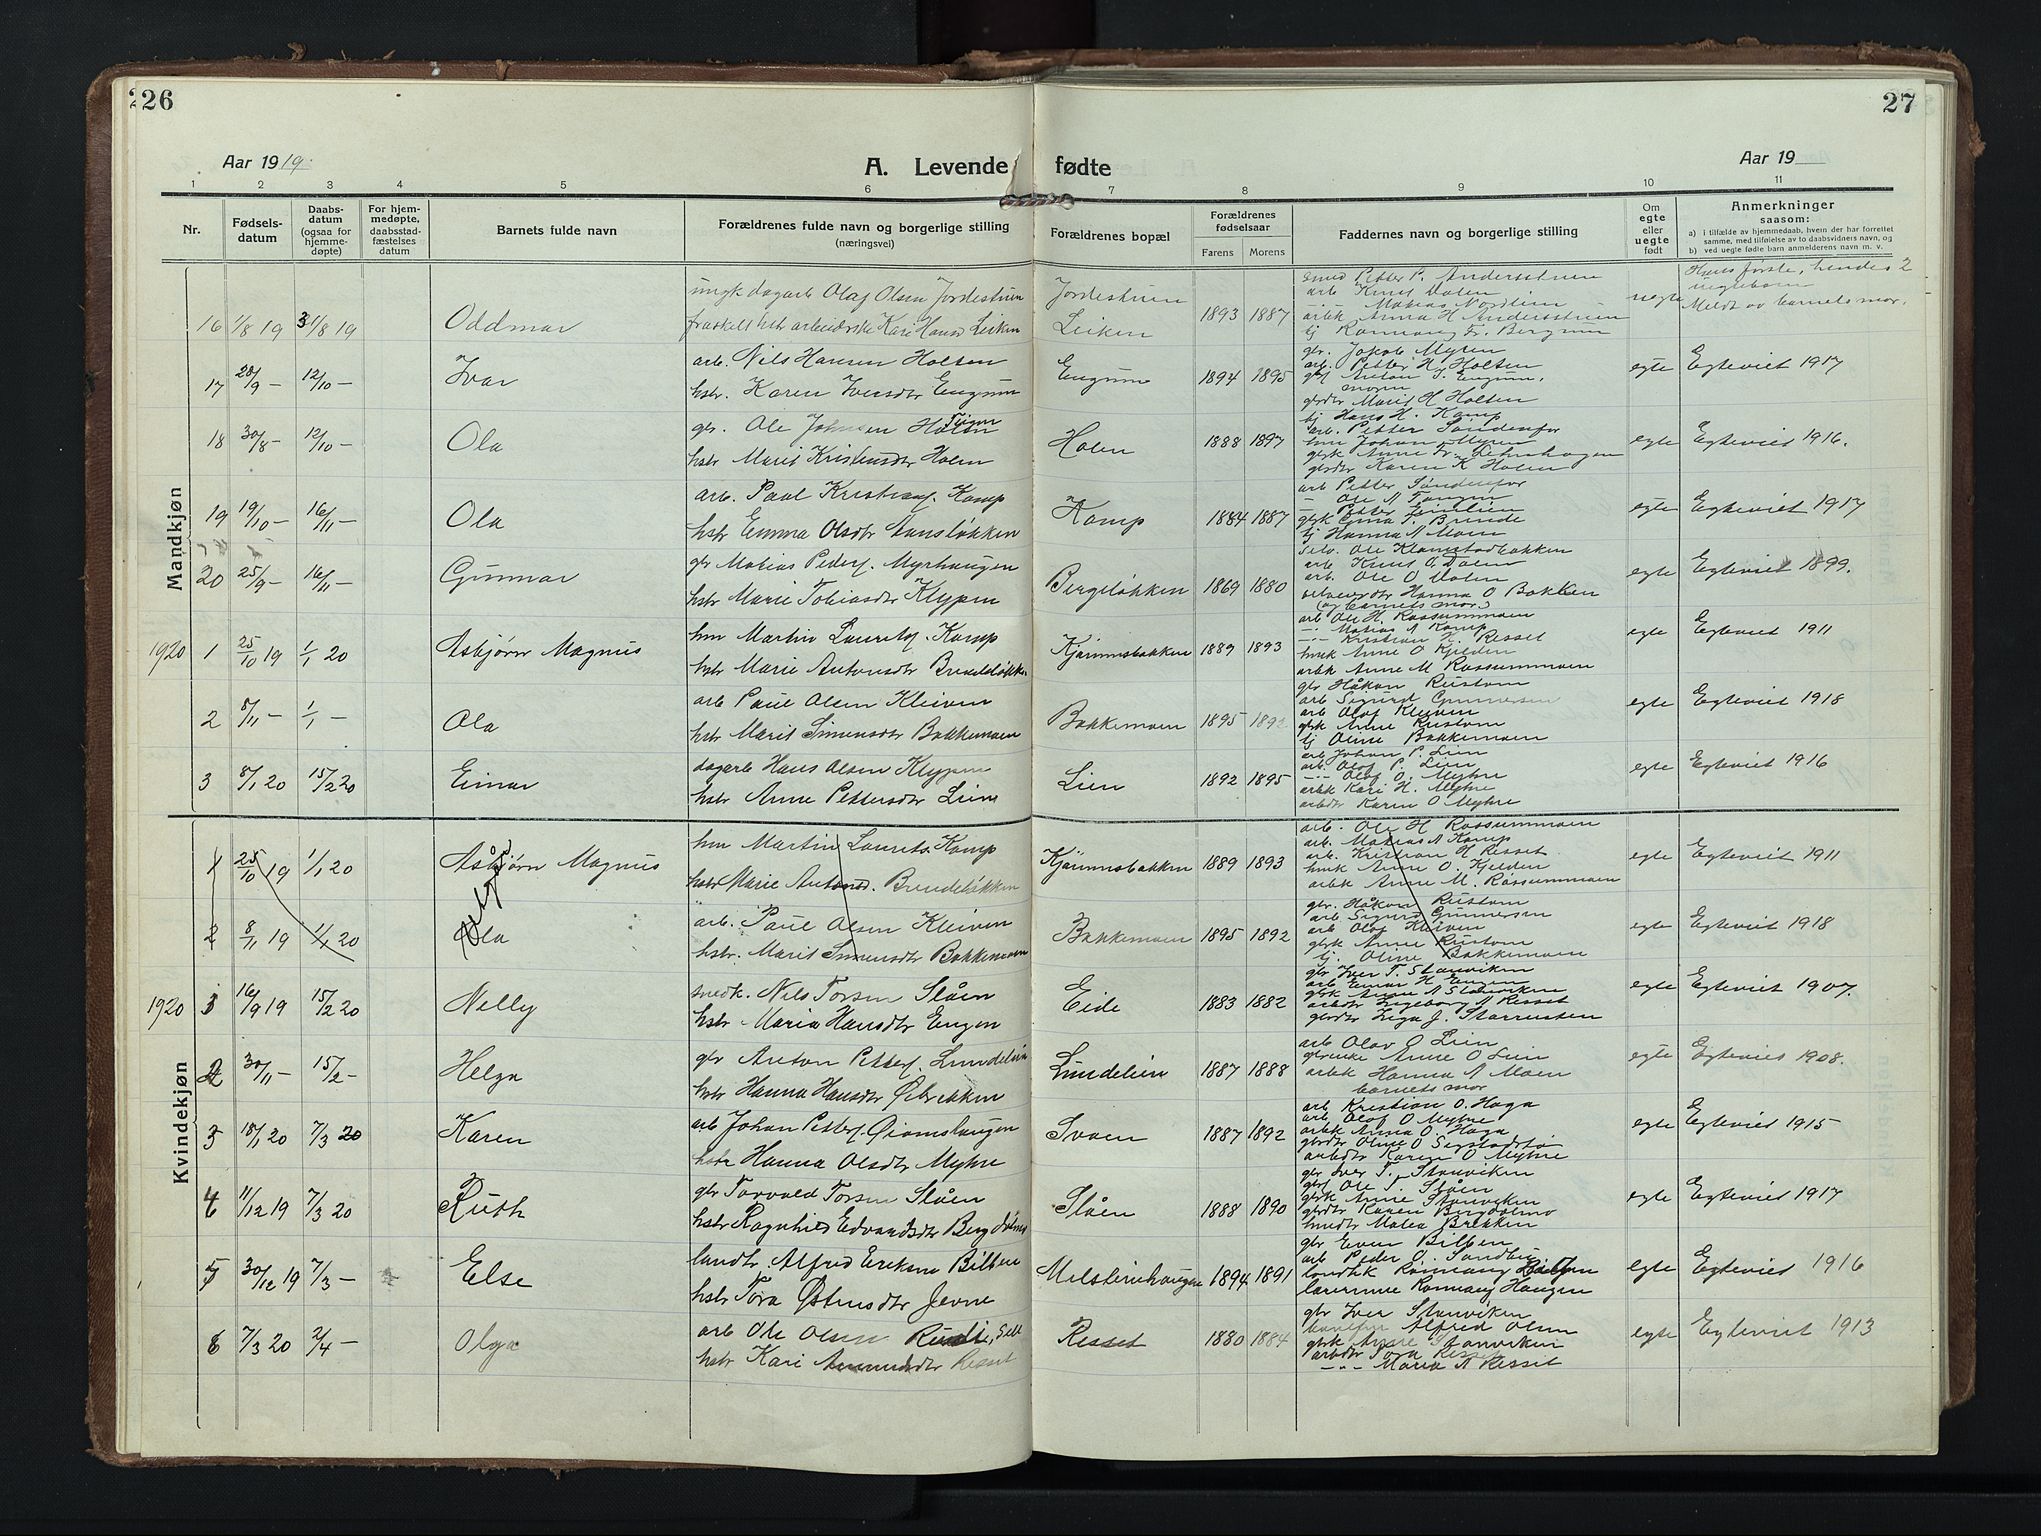 26
27
Aar 1919.
A. Levende fødte
Aar 19
1 2 3 4 5 6 7 8 9 10 11
Nr.
Fødsels-datum
Daabs-datum (ogsaa for hjemme-døpte)
For hjem-medøpte, daabsstad-fæstelses datum
Barnets fulde navn
Forældrenes fulde navn og borgerlige stilling (næringsvei)
Forældrenes bopæl
Forældrenes fødselsaar
Farens Morens
Faddernes navn og borgerlige stilling
Om egte eller uegte født
Anmerkninger saasom:
a) i tilfælde av hjemmedaab, hvem der har forrettet samme, med tilføielse av to daabsvidners navn, og
b) ved uegte fødte barn anmelderens navn m. v.
Mandkjøn
16 1/8 19 31/8 19 Oddmar
ungk dagarb Olaf Olsen Jordestuen
fraskilt hst arbeiderske Kari Hansd Leiken
Jordestuen
Leiken
1893 1887
smed Petter P. Andersstuen
arb Knut Dalen
Matias Nordlien
arbk Anna H Andersstuen
tj Rannang Fr. Bergum
uegte
Hans første, hendes 2 uegteborn
Meldt av barnets mor.
17 28/9 - 12/10 - Ivar
arb. Nils Hansen Holten
hstr. Karen Iversdtr Engum
Engum
1894 1895
gbr. Jakob Myren
arb. Petter H Holten
gbrdtr Marit H Holten
egte Egteviet 1917
18 30/8 - 12/10 - Ola
gbr. Ole Johnsen Holen
hstr Marit Kristensdtr Holen
Holen
1888 1897
tj Hans H. Kamp
arb. Petter Søndenfor
hm Johan Myren
gbrdtr Karen K Holen
egte Egteviet 1916.
19 19/10 - 16/11 - Ola
arb. Paul Kristiansf. Kamp
hstr Emma Olsdtr Aansløkken
Kamp
1884 1887
arb Petter Søndenfor
Ole N Tangen
tj Hanna N Moen
egte Egteviet 1917
20 25/9 - 16/11 - Gunnar
gbr Matias Pedersf. Myrhaugen
hstr Marie Tobiasdtr Klypen
Bergeløkken
1869 1880
selv. Ole Klomstadbakken
arb Knut O Dalen
arb. Ole O Dalen
selveierdtr Hanna O Bakken
(og barnets mor)
egte Egteviet 1899.
1920 1 25/10 19 1/1 20 Asbjørn Magnus
hm Martin Lauritsf. Kamp
hstr Marie Antonsdtr Brudeløkk.
Kjørumsbakken
1889 1893
arb Ole H. Rossummoen
Matias N Kamp
Kristian H. Resset
hmk Anne O Kjelden
arbk Anne M Rossummoen
egte Egteviet 1911
2 8/11 - 1/1 - Ola
arb Paul Olsen Kleiven
hstr Marit Simensdtr Bakkemoen
Bakkemoen 1895 1892
gbr Håkon Rustom
arb Sigurd Gunnersen
arb Olof Kleiven
gbrk Anne Rustom
tj Oline Bakkemoen
egte Egteviet 1918
3 8/1 20 15/2 20 Einar
dagarb Hans Olsen Klypen
hstr Anne Pettersdtr Lien
Lien
1892 1895
arb Johan P. Lien
arb. Olof P. Lien
Olof O. Myhre
arbk Kari H. Myhre
arbdtr Karen O Myhre
egte Egteviet 1916
Kvindekjøn
1 25/10 19 1/1 20 Asbjørn Magnus
hm Martin Laurits. Kamp
hstr Marie Antonsd. Brudeløkken
Kjørumsbakken 1889 1893
arb. Ole H Rossummoen
arb. Matias N Kamp
arb. Kristian H Resset
hmk Anne O. Kjelden
arbk Anne M. Rossummoen
egte Egteviet 1911
2 8/11 19 1/1 20 Ola
arb. Paul Olsen Kleiven
hstr. Marit Simensdtr Bakkemoen
Bakkemoen 1895 1892
gbr. Håkon Rustom
arb Sigurd Gunnersen
arb Olof Kleiven
gbrk Anne Rustom
tj. Oline Bakkemoen
egte Egteviet 1918
1920 16/9 19 15/2 20 Nelly
snedk. Nils Torsen Slåen
hstr. Maria Hansdtr Engen
Eide
1883 1882
gbr Iver T. Stauviken
arb Einar H Engen
gbrk Anne N Stauviken
arbdtr Ingeborg N Resset
egte Egteviet 1907.
2 30/11 - 15/2 - Helga
gbr Anton Pettersf. Lundelien
hstr Hanna Hansdtr Øibrekken
Lundelien 1887 1888
arb Olav O Lien
Anne O Lien
arbk Hanna N Moen
barnets mor
egte Egteviet 1908.
3 18/1 20 7/3 20 Karen
arb Johan Pettersf.
hstr Hanna Olsdtr Myhre
Svaen
1887 1892
arb Kristian O. Haga
arb Olof O Myhre
arbk Anna O Haga
arbdtr Karen O Myhre
egte Egteviet 1915
4 11/12 19 7/3 20 Ruth
gbr Torvald Torsen Slåen
hstr Ragnhild Edvardsdtr Bergdølmo
Slåen
1888 1890
gbr Iver T. Stauviken
gbr Ole T Slåen
gbrk Anne Stauviken
gbrdtr Karen Bergdølmo
hmdtr Matea Brekken
egte Egteviet 1917
5 30/12 19 7/3 - Else
landh. Alfred Eriksen Bilben
hstr Tora Østensdtr Jevne
Milsteinhaugen 1894 1891
gbr Even Bilben
arb Peder O. Sandbu
lærerinne Rannang Haugen
egte Egteviet 1916
6 7/3 20 2/4 - Olga
arb Ole Olsen
hstr Kari Amundsdtr Resset
Resset
1880 1884
gbr Iver Stauviken
Alfred Olsen
gbrk Anne Stauviken
arbdtr Tora Resset
Maria N Resset
egte Egteviet 1913